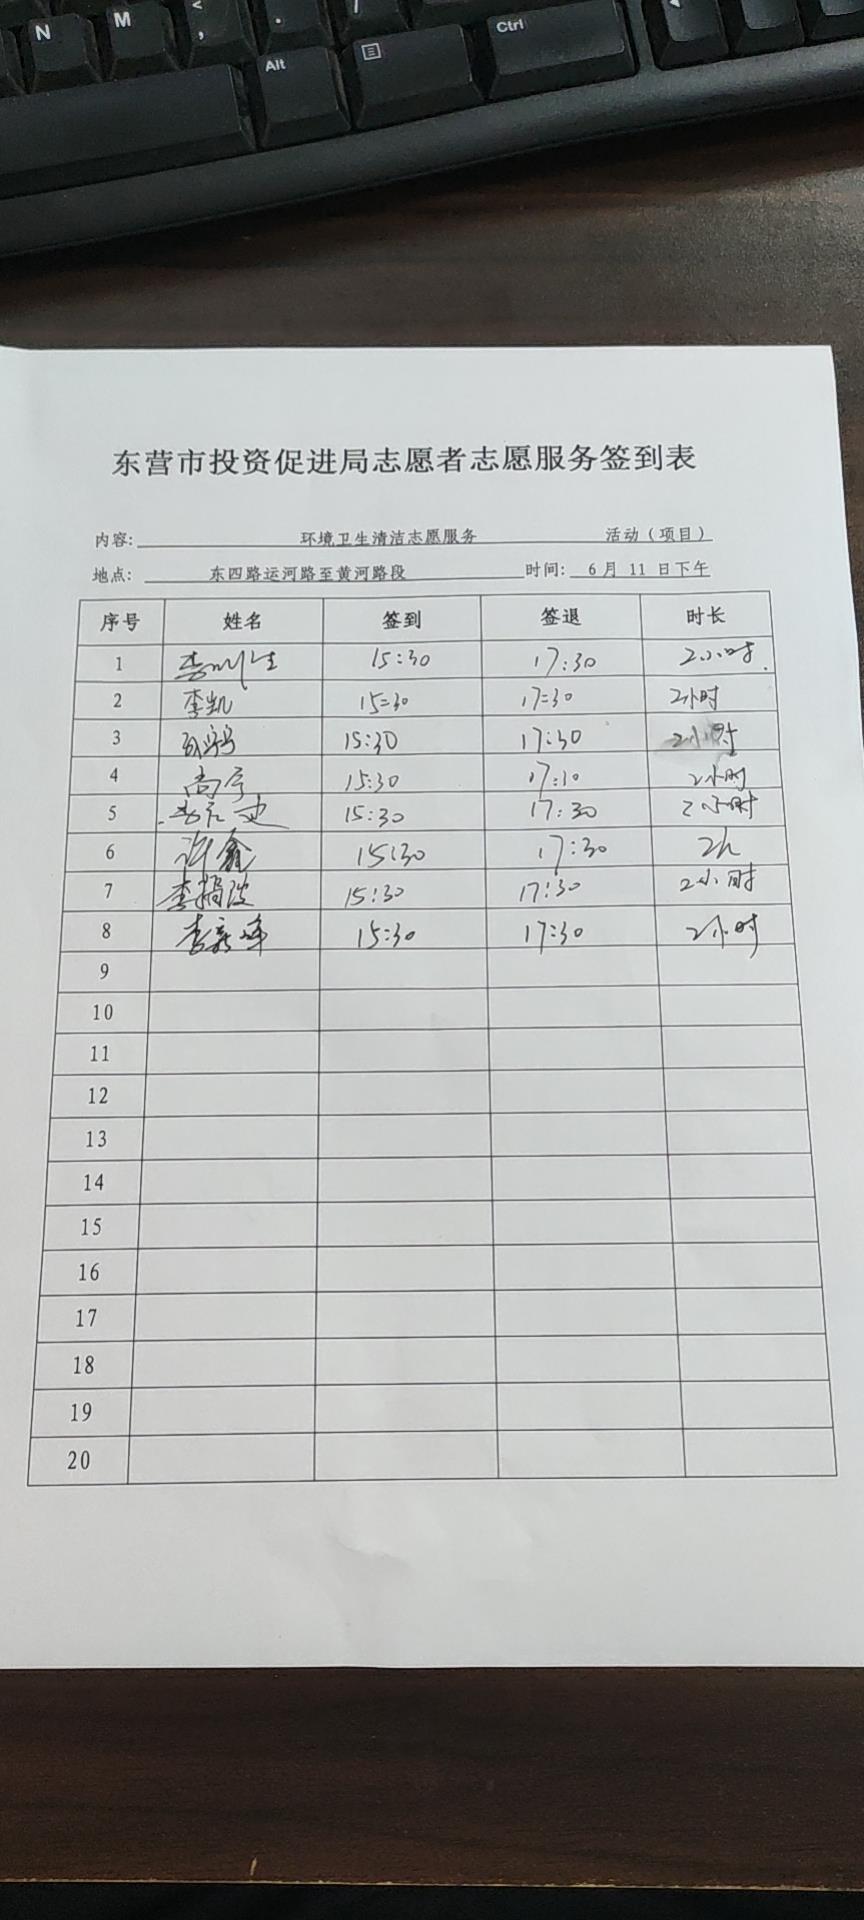 N M < , . /
Alt Ctrl
东营市投资促进局志愿者志愿服务签到表
内容: 环境卫生清洁志愿服务 活动（项目）
地点: 东四路运河路至黄河路段 时间: 6月 11 日下午
序号 姓名 签到 签退 时长
1 15:30 17:30 2小时.
2 李凯 15:30 17:30 2小时
3 15:30 17:30 2小时
4 尚宇 15:30 17:30 2小时
5 15:30 17:30 2小时
6 许鑫 15:30 17:30 2h
7 15:30 17:30 2小时
8 15:30 17:30 2小时
9
10
11
12
13
14
15
16
17
18
19
20